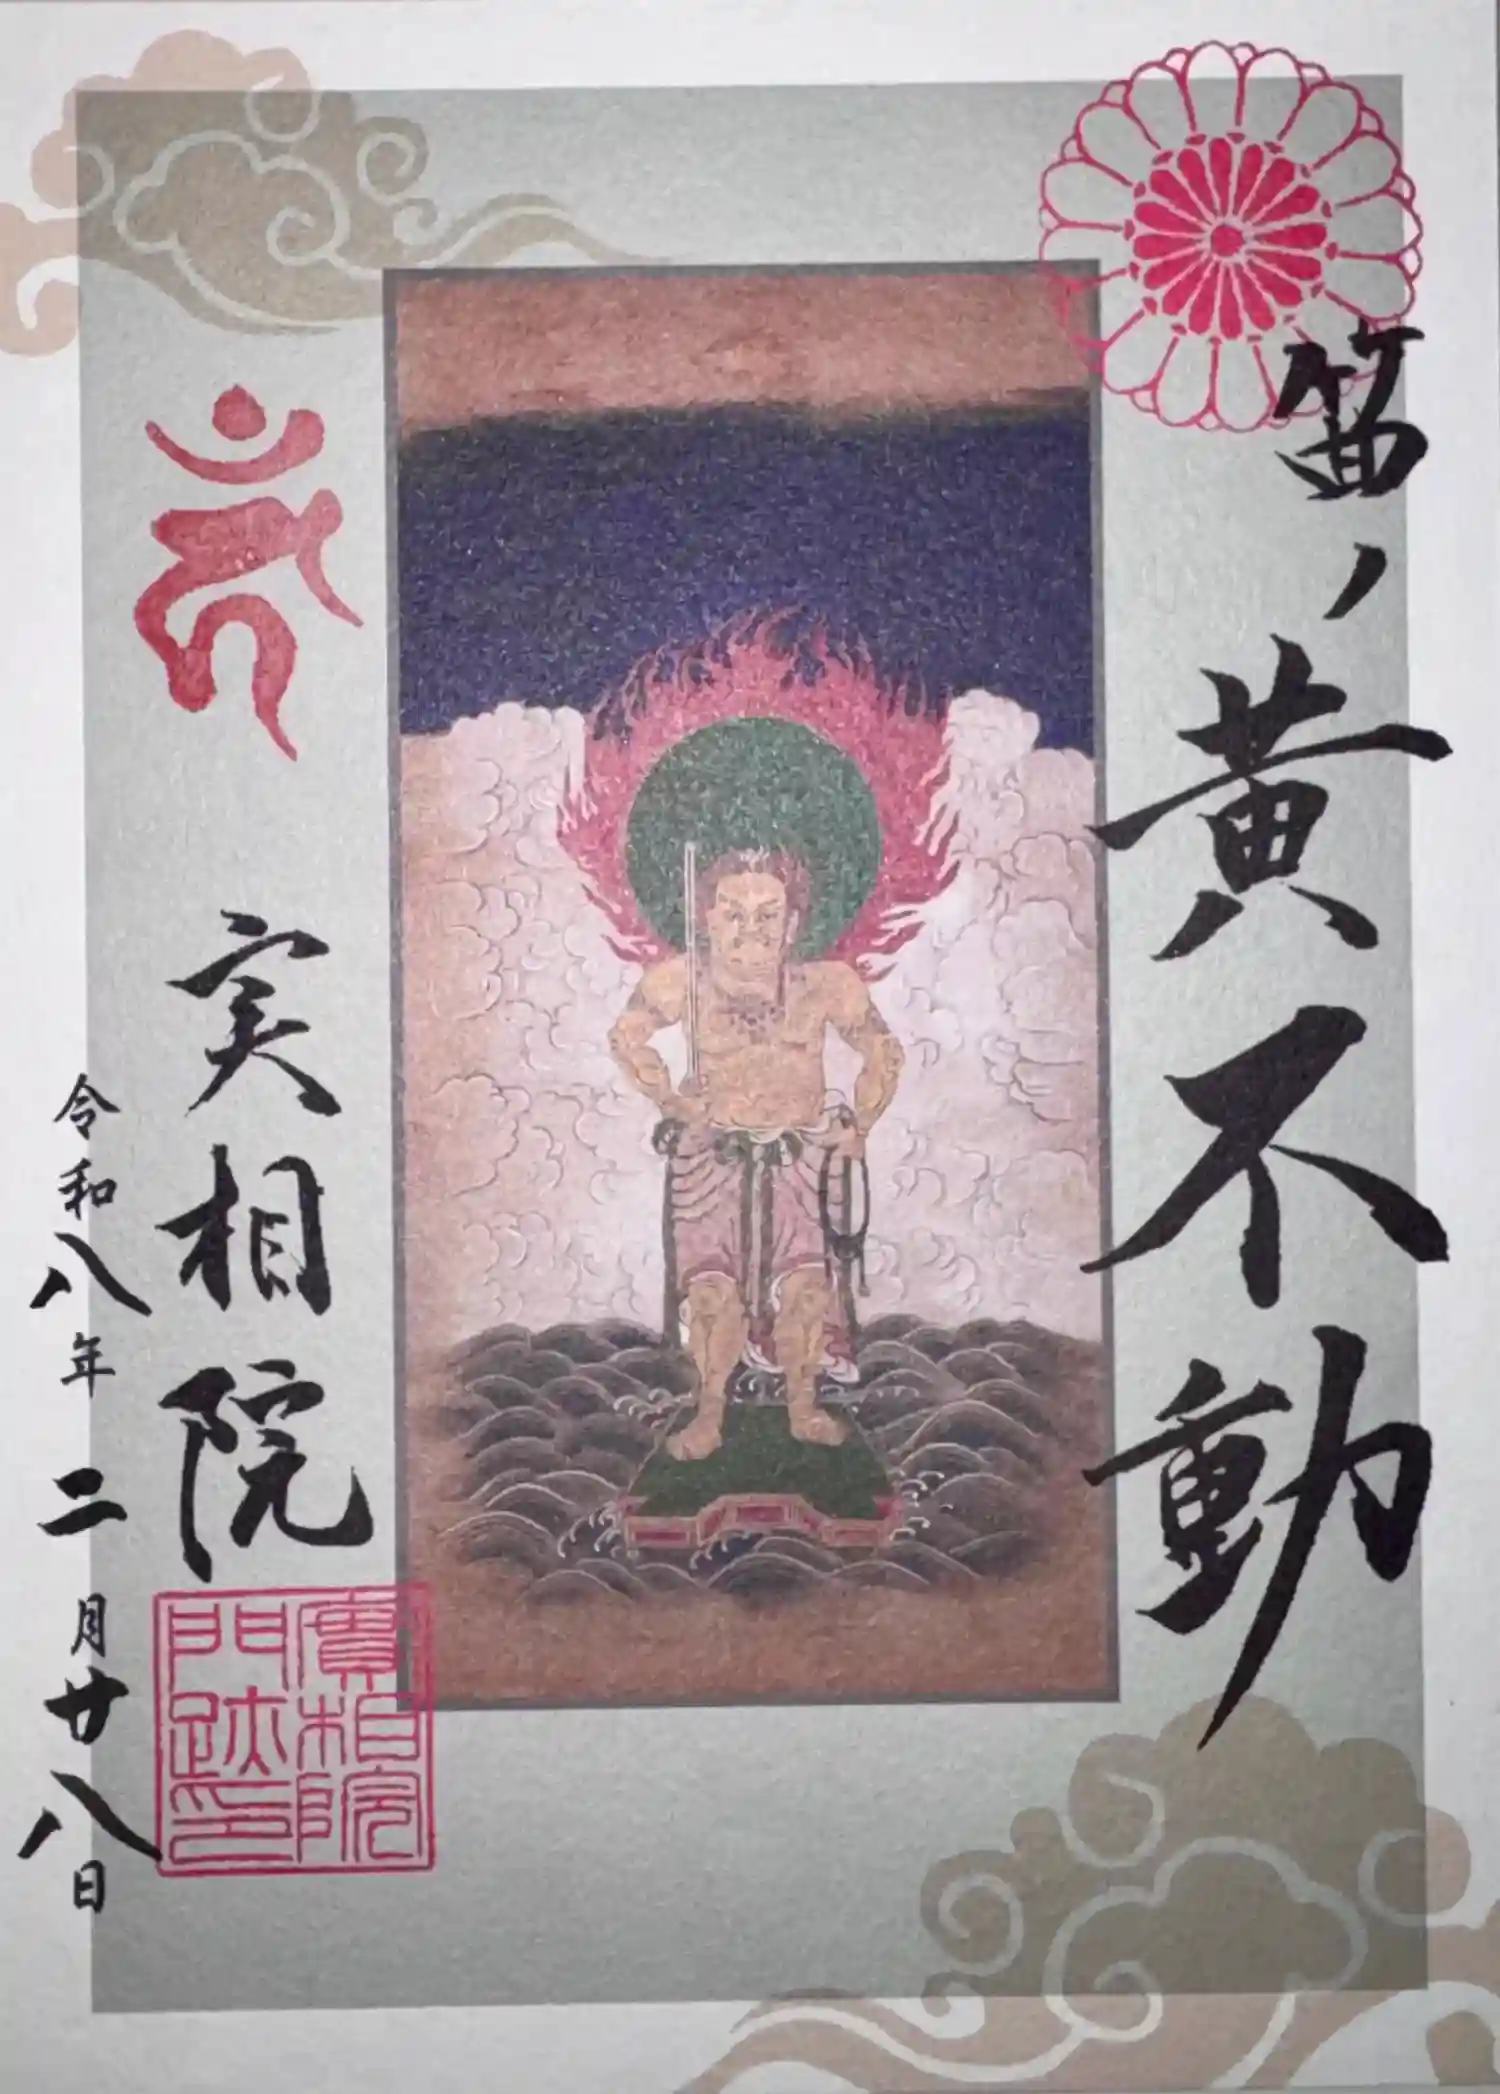 笛ノ黄不動
実相院
令和八年二月廿八日
實相院
門跡印